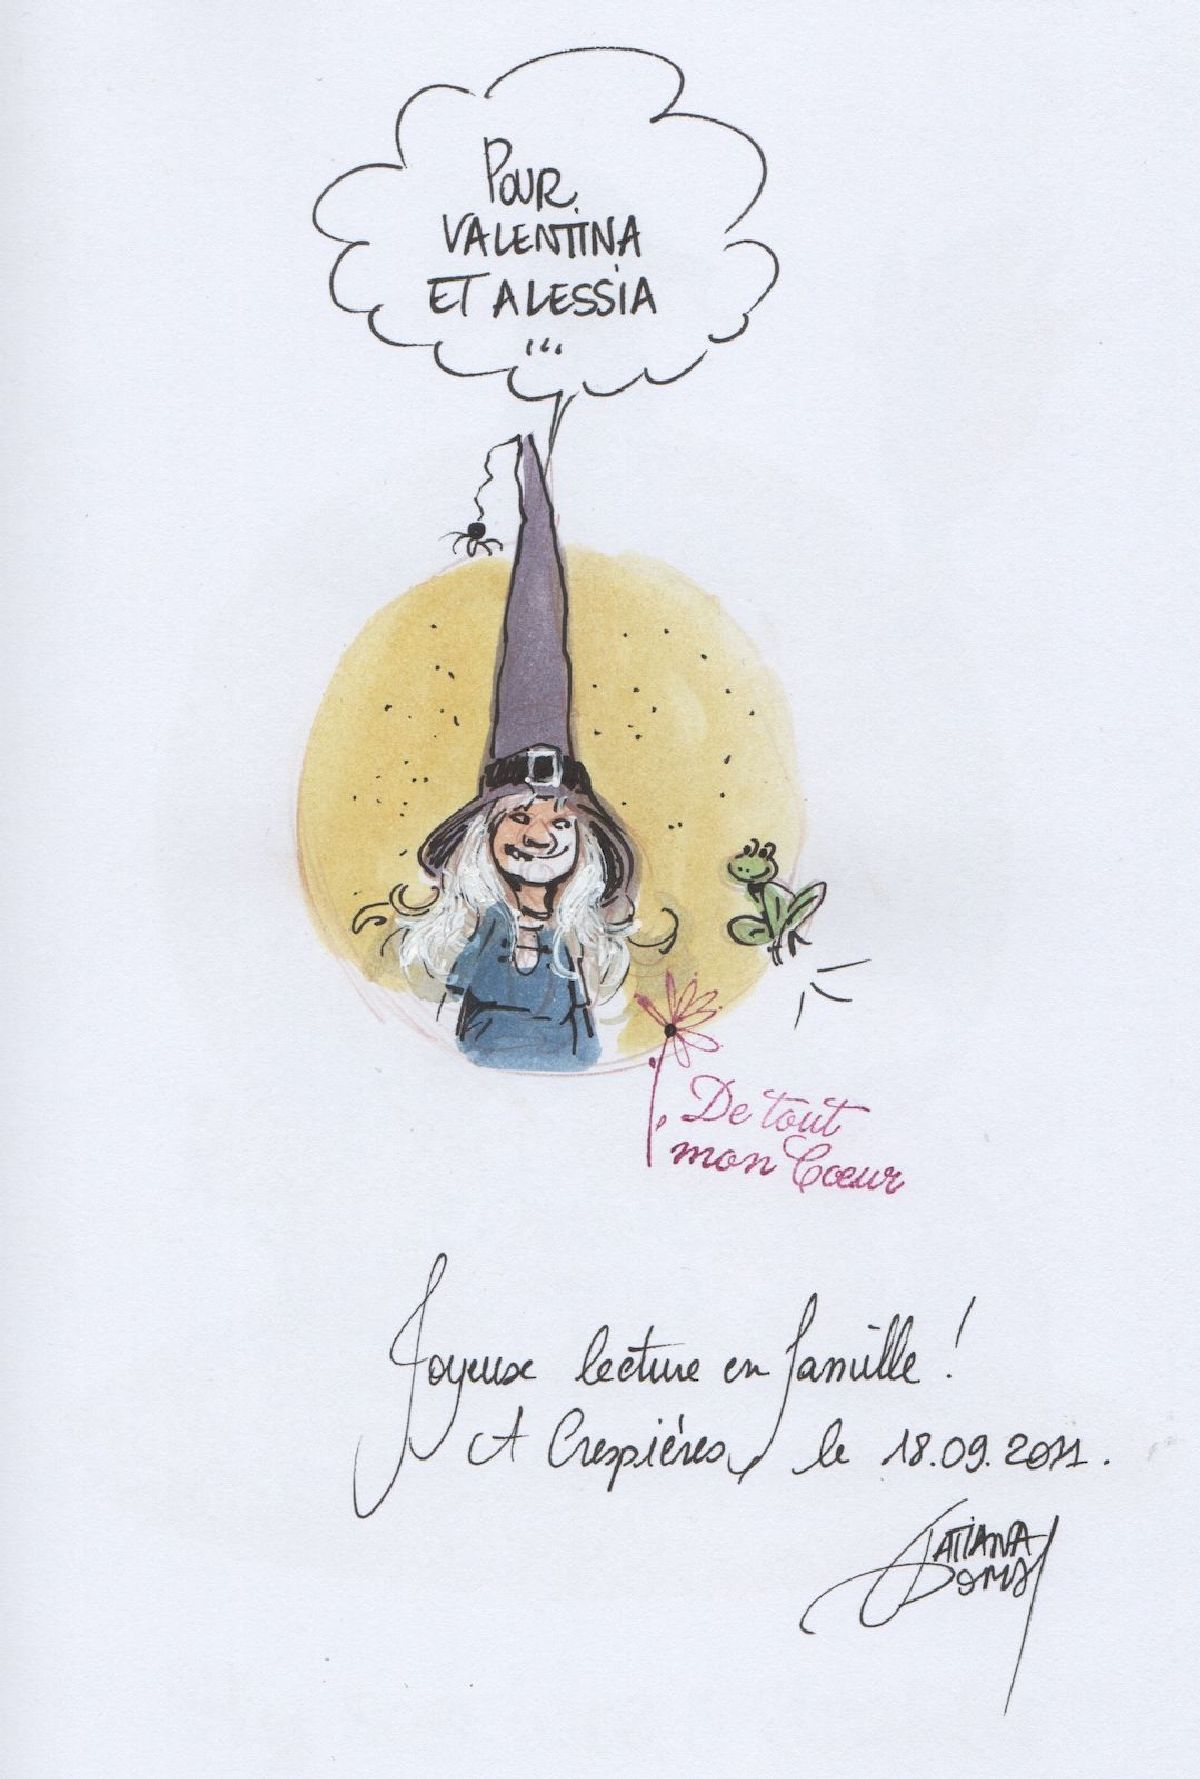 POUR
VALENTINA
ET ALESSIA
...
De tout
mon Coeur
Joyeuse lecture en famille !
A Crespières, le 18.09.2011.
TATIANA
DOMAS